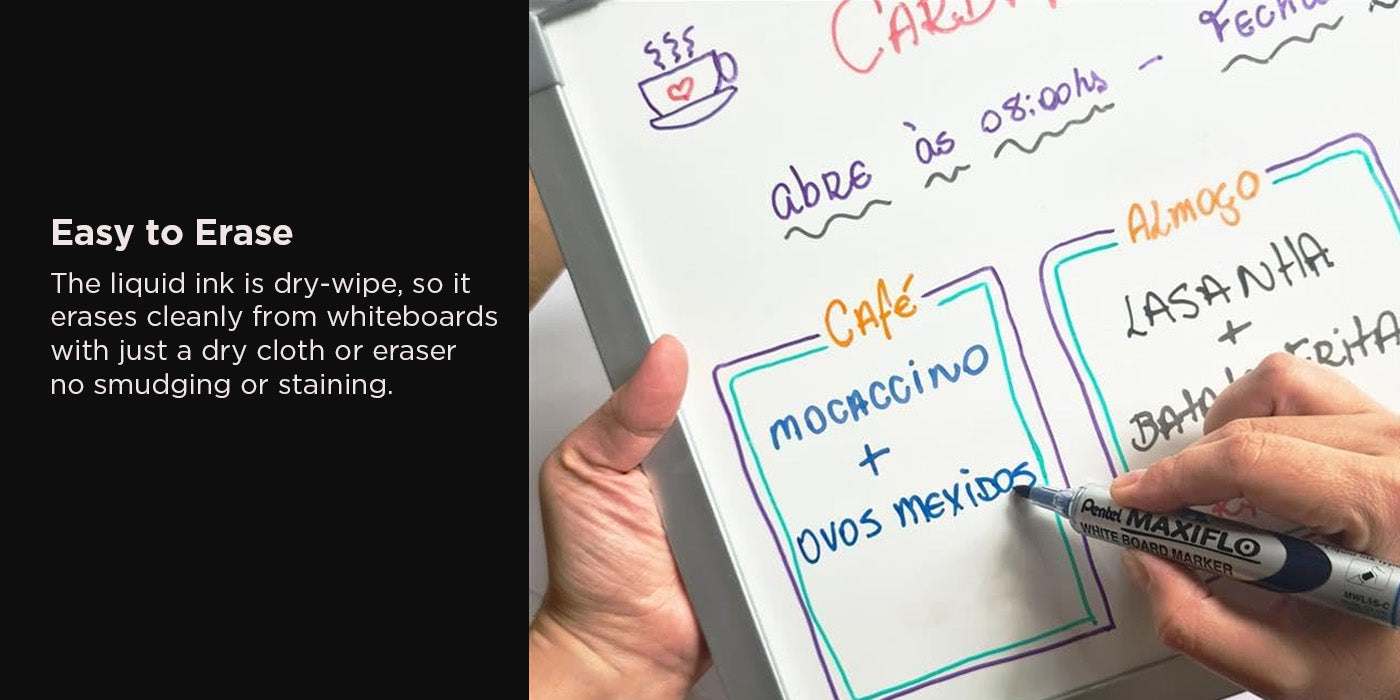 Easy to Erase
The liquid ink is dry-wipe, so it
erases cleanly from whiteboards
with just a dry cloth or eraser
no smudging or staining.
abre às 08:00hs -
Café
MOCACCINO
+
OVOS MEXIDOS
ALMOÇO
LASANHA
+
Pentel MAXIFLO
WHITE BOARD MARKER
MWL5S-C